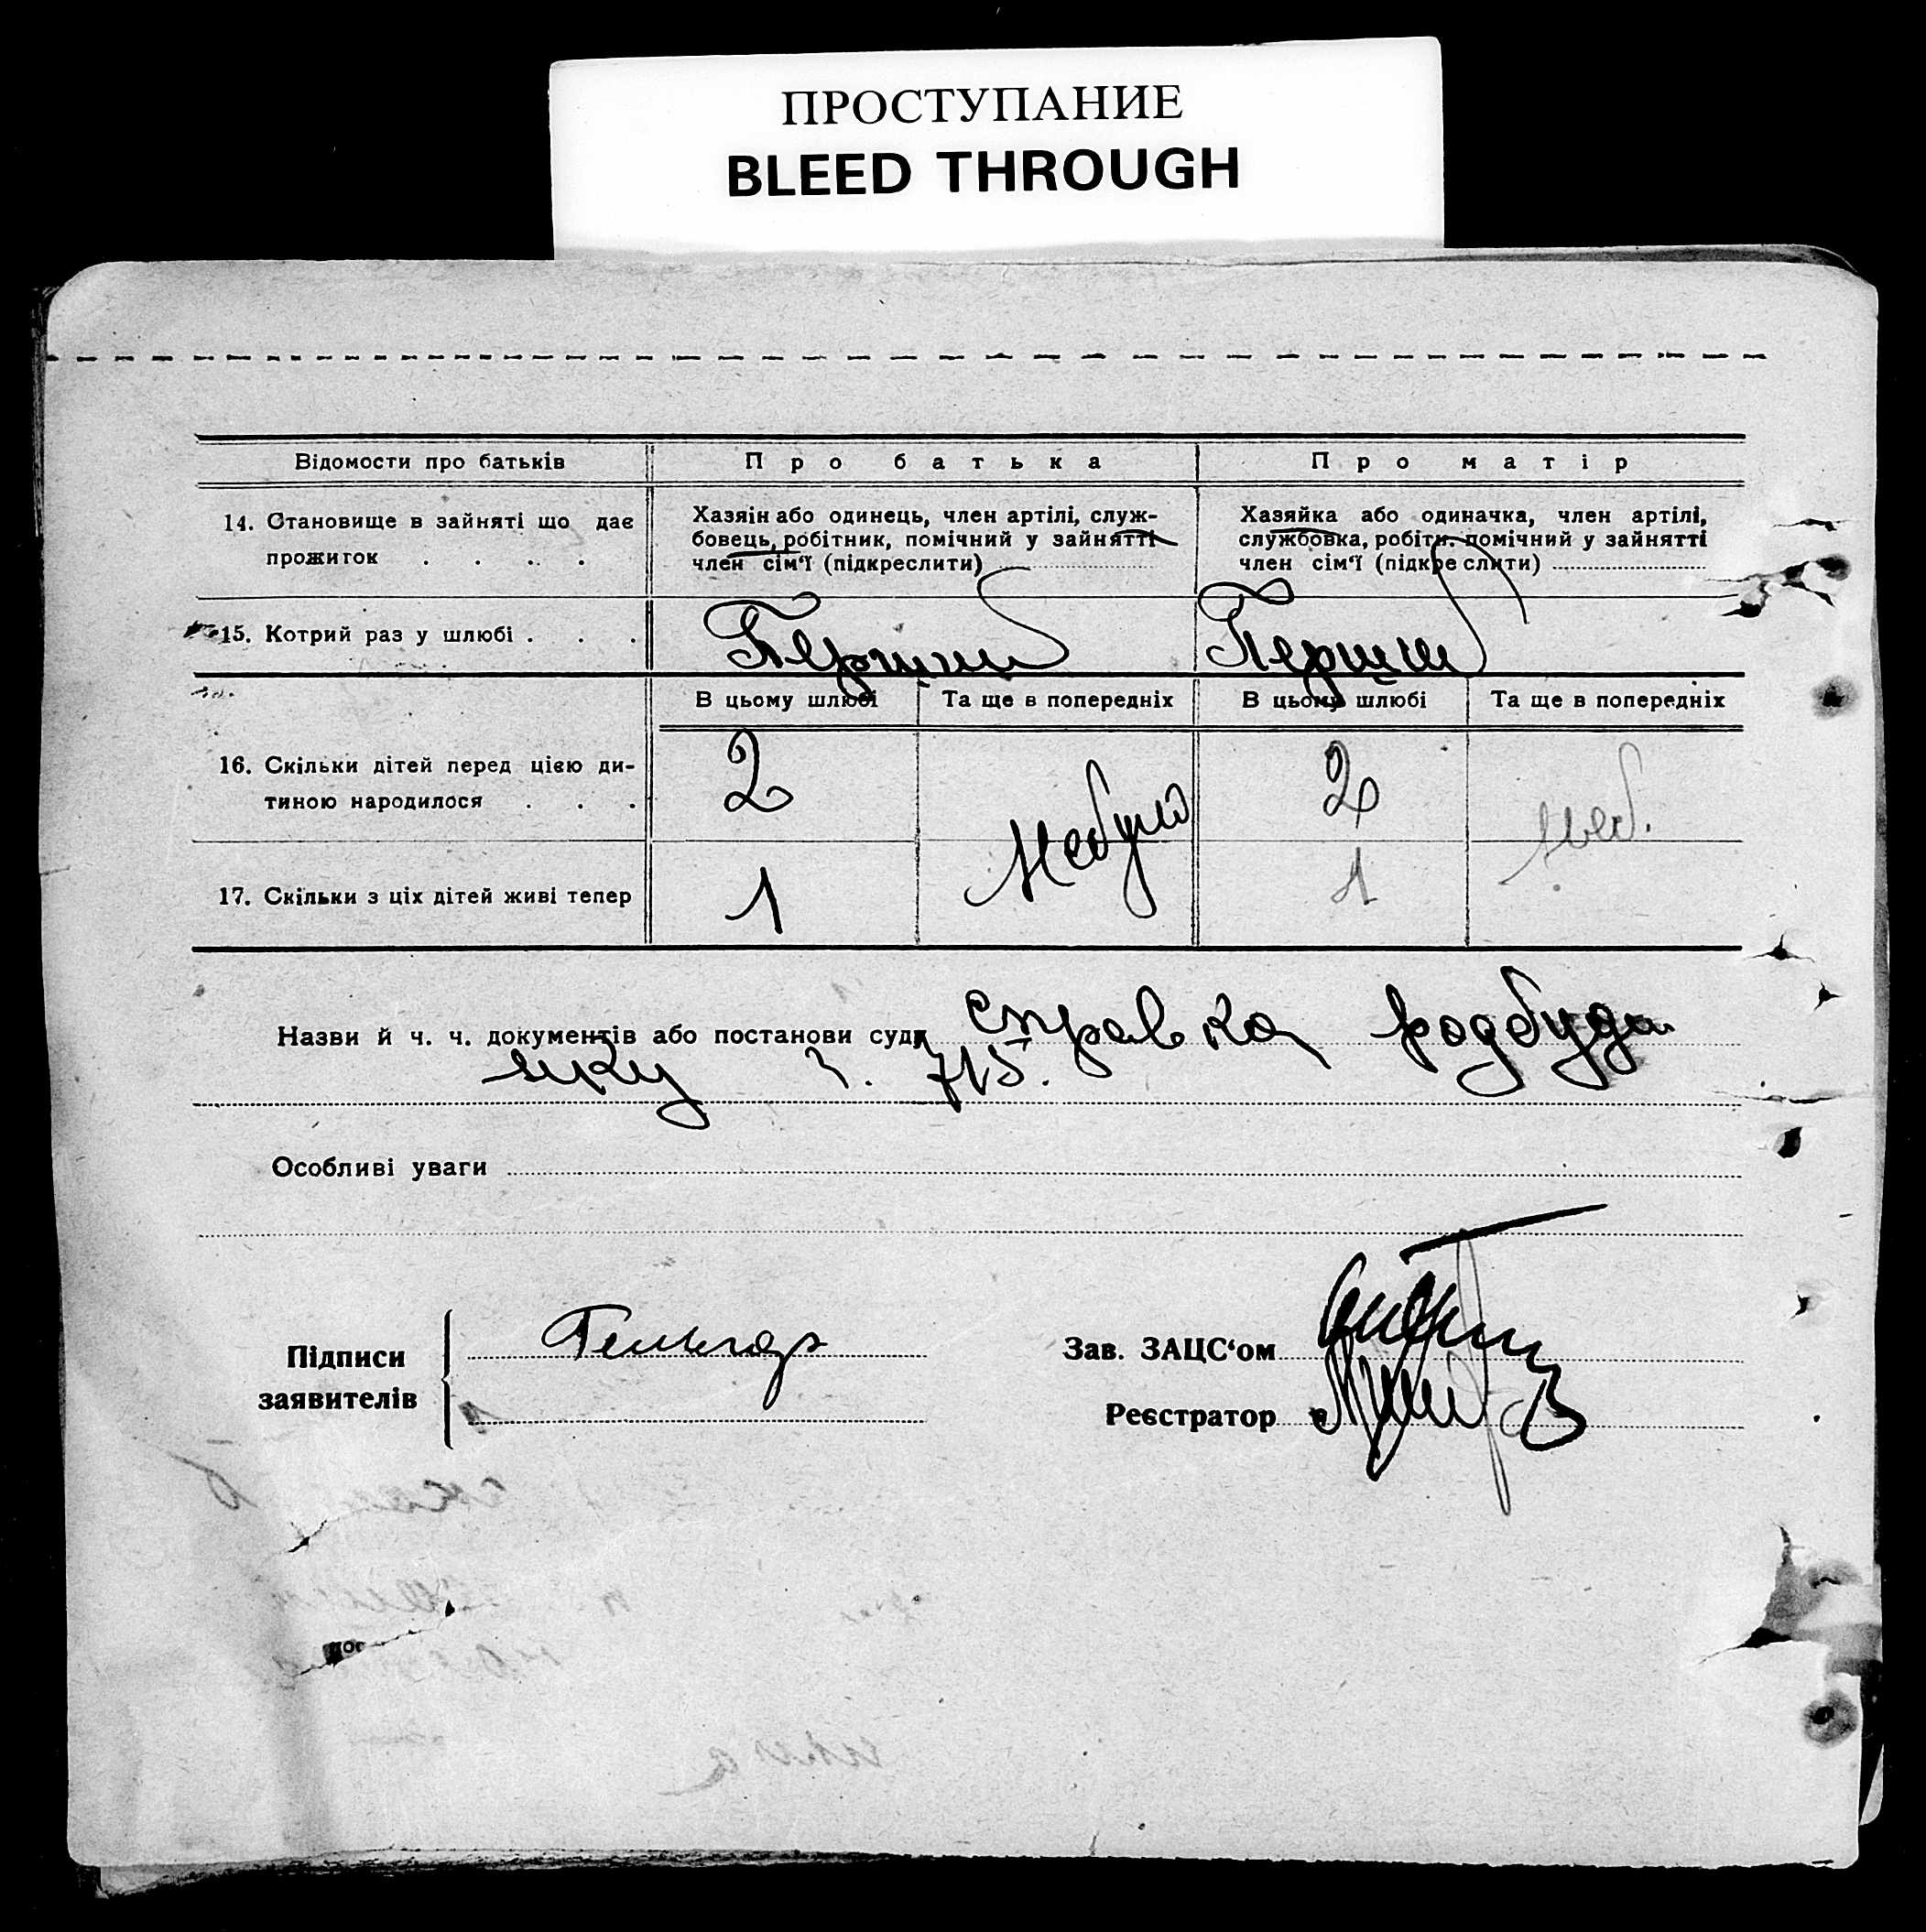 ПРОСТУПАНИЕ
BLEED THROUGH
Відомости про батьків
Про батька
Про матір
14. Становище в зайняті що дає
прожиток . . . .
Хазяїн або одинець, член артілі, служ-
бовець, робітник, помічний у зайнятті
член сім‘ї (підкреслити)
Хазяйка або одиначка, член артілі,
службовка, робітн. помічний у зайнятті
член сім‘ї (підкреслити)
15. Котрий раз у шлюбі . . .
Перший
Перший
В цьому шлюбі
Та ще в попередніх
В цьому шлюбі
Та ще в попередніх
16. Скільки дітей перед цією ди-
тиною народилося . . .
2
Небуло
2
Неб.
17. Скільки з ціх дітей живі тепер
1
1
Назви й ч. ч. документів або постанови суду справка родбуда
ч. 715.
Особливі уваги
Підписи
заявителів
Зав. ЗАЦС‘ом
Реєстратор